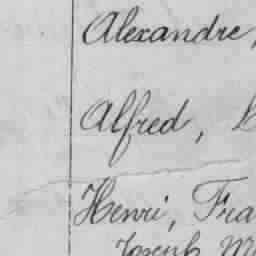 Alexandre,
Alfred,
Henri, Fra
Joseph M